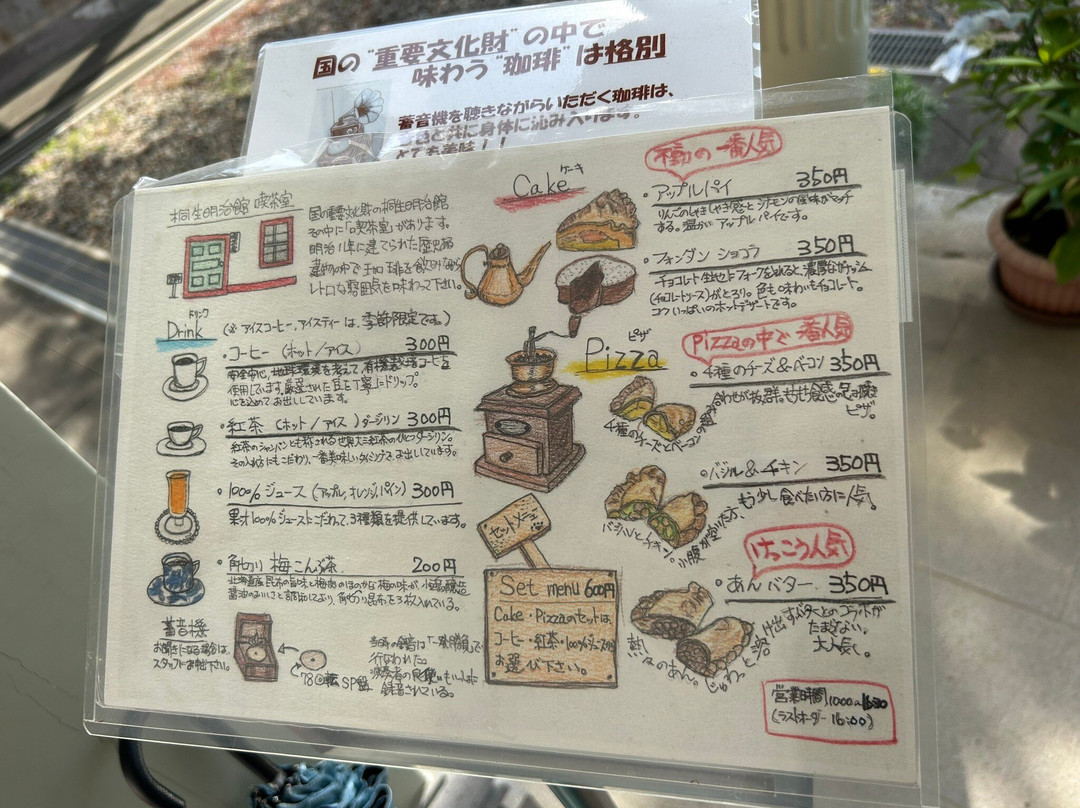 国の"重要文化財"の中で
味わう"珈琲"は格別
蓄音機を聴きながらいただく珈琲は、
と共に身体に沁み入ります。
とても美味！！
桐生明治館 喫茶室
国の重要文化財の桐生明治館
その中に「喫茶室」があります。
明治11年に建てられた歴史的
建物の中で珈琲を飲みながら
レトロな雰囲気を味わって下さい。
ドリンク
Drink
(※アイスコーヒー、アイスティーは、季節限定です。)
・コーヒー (ホット/アイス) 300円
安全安心、地球環境を考えて有機栽培コーヒーを
使用しています。厳選された豆を丁寧にドリップ。
心を込めてお出ししています。
・紅茶 (ホット/アイス) ダージリン 300円
紅茶のシャンパンとも称される世界大三紅茶のひとつダージリン。
その入れ方にもこだわり、一番美味しいタイミングで、お出ししています。
・100%ジュース (アップル、オレンジ、パイン) 300円
果汁100%ジュースにこだわって、3種類を提供しています。
・角切り 梅こんぶ茶 200円
北海道産昆布の旨味と梅肉のほのかな梅の味が、
醤油のおいしさと調和しており、角切り昆布を3枚入れている。
蓄音機
お聞きになる場合は、
スタッフにお申出下さい。
78回転SP盤
当時の録音は「一発勝負」で
行なわれた。
演奏者の
録音されている。
ケーキ
Cake
不動の一番人気
・アップルパイ 350円
りんごのしゃきしゃき感とシナモンの風味がマッチ
する。温かいアップルパイです。
・フォンダン ショコラ 350円
チョコレート生地にフォークを入れると、濃厚なガナッシュ
(チョコレートソース)がとろり。色も味わいもチョコレート。
コクいっぱいのホットデザートです。
ピザ
Pizza
Pizzaの中で一番人気
・4種のチーズ&ベーコン 350円
4種のチーズとベーコンの組み合わせが抜群。もちもち食感の
ピザ。
・バジル&チキン 350円
バジルとチキン。小腹が空いた方、もう少し食べたい方に人気。
けっこう人気
・あんバター 350円
熱々のあん。じゅわっと溶け出すバターとのコラボが
たまらない。
大人気。
セットメニュー
Set menu 600円
Cake・Pizzaのセットは、
コーヒー・紅茶・100%ジュースから
お選び下さい。
営業時間 10:00〜16:30
(ラストオーダー 16:00)